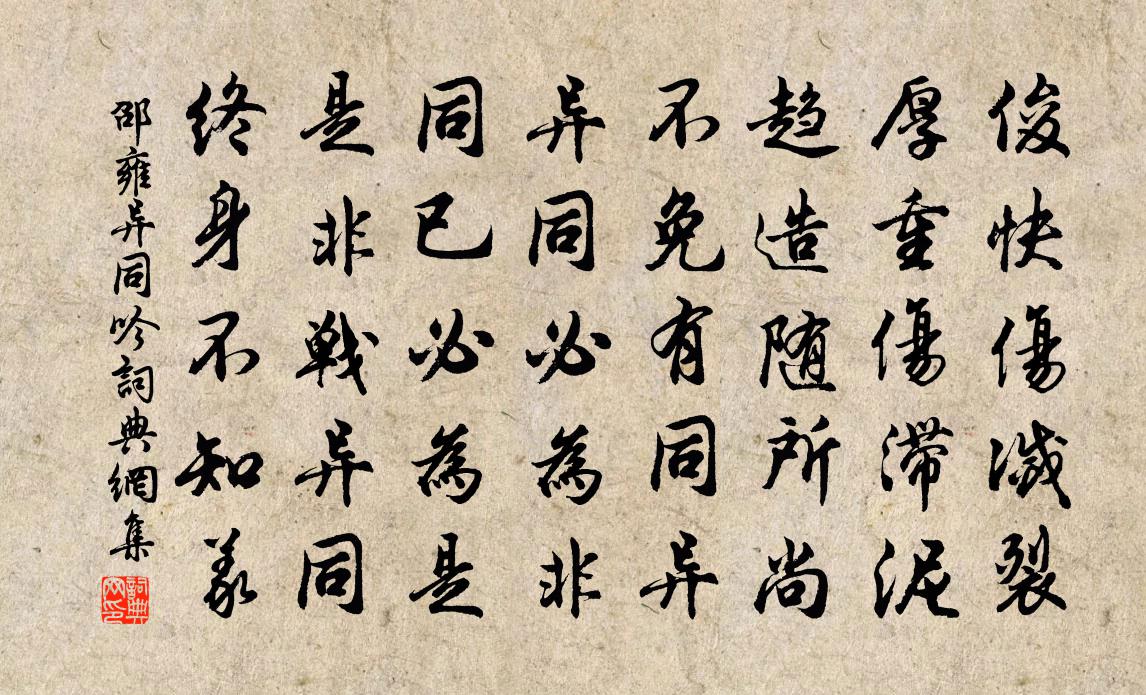 俊快傷滅裂
厚重傷滯泥
趋造随所尚
不免有同异
异同必為非
同已必為是
是非戦异同
终身不知義
邵雍异同吟詞典網集
詞典
网印